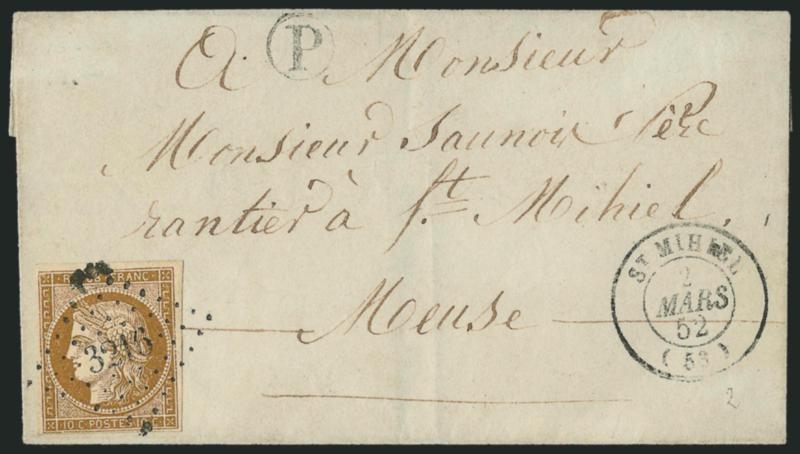 P
A Monsieur
Monsieur Saunois Père
rantier à St. Mihiel.
Meuse
ST MIHIEL
2
MARS
52
(53)
REPUB FRANC
3216
10 C POSTES 10 C
2